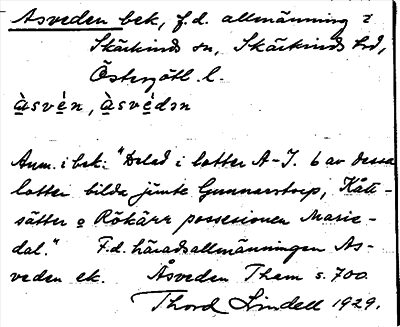 Asveden bek, f.d. allmänning i
Skärkinds sn, Skärkinds hd,
Östergötl. l.
àsvén, àsvédən
Anm. i bek.: "Delad i lotter A-J. 6 av dessa
lotter bilda jämte Gunnarstorp, Kätt-
sätter o Rökärr possesionen Marie-
dal." F.d. häradsallmänningen As-
veden ek. Åsveden Tham s. 700.
Thord Lindell 1929.